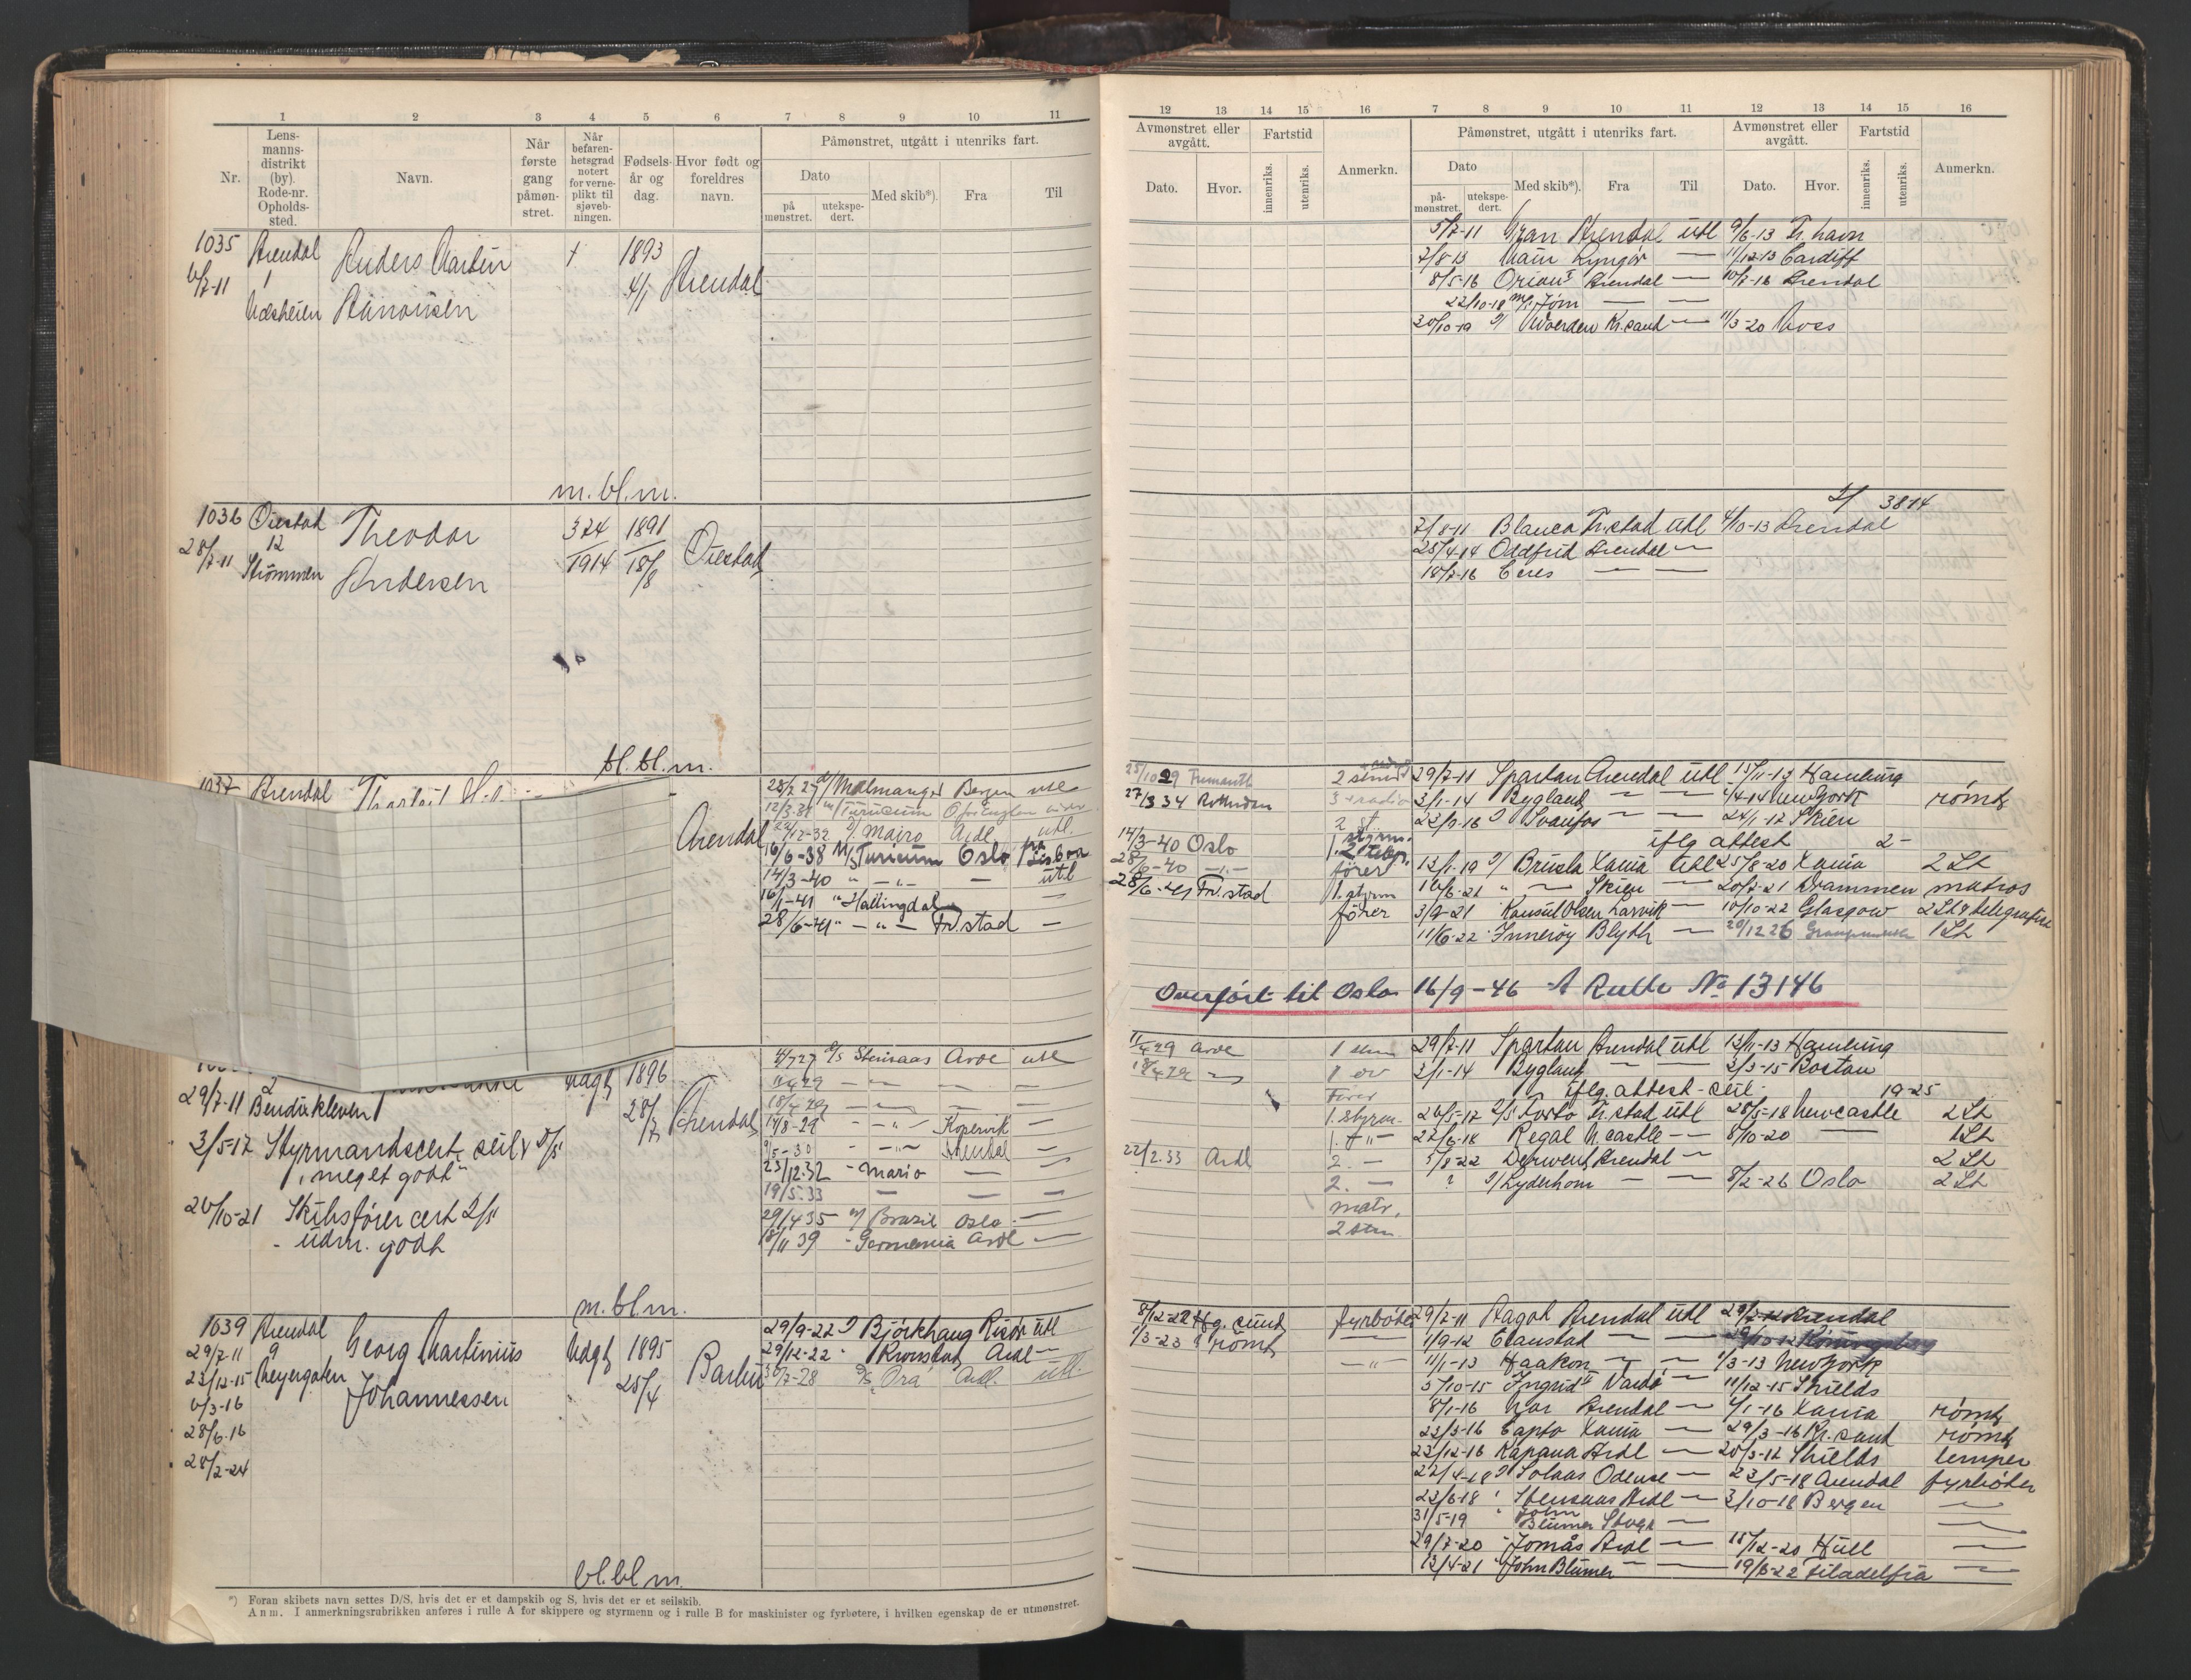 1 2 3 4 5 6 7 8 9 10 11
Nr.
Lens-
manns-
distrikt
(by).
Rode-nr.
Opholds-
sted.
Navn.
Når
første
gang
påmøn-
stret.
Når
befaren-
hetsgrad
notert
for verne-
plikt til
sjøveb-
ningen.
Fødsels-
år og
dag.
Hvor født og
foreldres
navn.
Påmønstret, utgått i utenriks fart.
Dato
på
mønstret.
utekspe-
dert.
Med skib*).
Fra
Til
1035 Arendal Anders Martin + 1893
6/7-11 1 4/1 Arendal
m. bl. m.
1036 Øiestad Theodor 324 1891
28/7-11 12 1914 18/8 Øiestad
Strømmen Andersen
bl. bl. m.
1037 Arendal
23/2 27 Malmanger Bergen utl
Arendal 22/12-32 Mairo Adl utl.
16/6-38 M/S Turicum Oslo på Lisboa
14/3-40 " — " — — utl
16/1-41 " Hallingdal —
28/6-41 " — " — Fr.stad —
2 Udagt 1896
29/7-11 Bendixkleven 28/7 Arendal
3/5-17 Styrmandscert. seil
"meget godt"
20/10-21 Skibsfører cert
- udm. godt
4/7 27 D/S Steinaas Arde utl
11/4 29 — — — —
18/4 29 — — — —
14/8-29 — " — Kopervik —
9/5-30 — " — Arendal —
23/12 32 - Mario — —
19/5 33 — — —
29/4 35 M/ Brazil Oslo —
18/11 39 - Germania Arde —
m. bl. m.
1039 Arendal Georg Martinius Udagt 1895
29/7-11 9 Johannessen 25/4 Barbu
23/12-15 Meyergaten
6/3-16
28/6-16
28/2-24
29/9-22 Bjørkhaug Risør utl
29/12-22 " Kronstad Adl —
7-28 D/S Ora Adl. utl.
bl. bl. m.
*) Foran skibets navn settes D/S, hvis det er et dampskib og S, hvis det er et seilskib.
Anm. I anmerkningsrubrikken anføres i rulle A for skippere og styrmenn og i rulle B for maskinister og fyrbøtere, i hvilken egenskap de er utmønstret.
12 13 14 15 16 7 8 9 10 11 12 13 14 15 16
Avmønstret eller
avgått.
Dato.
Hvor.
Fartstid
innenriks.
utenriks.
Anmerkn.
Påmønstret, utgått i utenriks fart.
Dato
på-
mønstret.
utekspe-
dert.
Med skib*).
Fra
Til
Avmønstret eller
avgått.
Dato.
Hvor.
Fartstid
innenriks.
utenriks.
Anmerkn.
5/7-11 Gran Arendal utl 9/6-13 Fr.havn
7/8-13 Lyngør — 11/12-13 Cardiff
8/5-16 Orion Arendal — 10/7-16 Arendal
22/10-18 Jørn — —
30/10-19 Kr.sand — 11/3-20 Moss
3814
7/8-11 Blanca Fr.stad utl 4/10-13 Arendal
25/4-14 Oddfrid Arendal —
18/7-16 Ceres — —
25/10 29 2 29/7-11 Spartan Arendal utl 15/11-13 Hamburg
27/3 34 Rotterdam 3/1-14 Bygland — — 4/4-14 New York rømt
22/9-16 Svanfos — — 24/1-17 Skien
iflg attest 2-
14/3-40 Oslo 1. styrm. 12/1-19 Brusla Xania utl 25/8-20 Xania 2 St
28/6-40 — " — fører 16/6-21 " — Skien — 20/7-21 Drammen matros
28/6-41 Fr.stad 1. styrm 3/9-21 Konsul Olsen Larvik — 10/10-22 Glasgow 2 St & telegrafist
fører 11/6-22 Innerøy Blyth — 20/12 26 1 St
Overført til Oslo 16/9-46 A Rulle No 13146
11/4 29 Arde 29/7-11 Spartan Arendal utl 12/11-13 Hamburg
18/4 29 — 3/1-14 Bygland — — 2/3-15 Boston
Fører iflg. attest - seil 19-25
1. styrm. 26/5-17 Torto Fr.stad utl 28/5-18 Newcastle 2 St
22/6-18 Regal N.castle — — 8/10-20 — 1 St
22/2.33 Ardl 2. — 5/8-22 Derwent Arendal — 2 St
2. — ? Lyderhorn — — 8/2-26 Oslo 2 St
matr.
2 stm.
8/12-22 Hg.sund fyrbøter 29/7-11 Dagok Arendal utl Arendal
1/3-23 rømt — 1/9-12 Claustad — —
— " — 11/1-13 Haakon — — 1/3-13 New York
5/10-15 Ingrid Vardø 11/12-15 Shields
8/1-16 Nor Arendal — 4/1-16 Xania rømt
22/3-16 Capto Xania — 29/3-16 Kr.sand rømt
22/12-16 Kapana Ardl — 20/3-17 Shields lemper
22/4-18 Solaas Odense — 23/5-18 Arendal fyrbøter
22/6-18 Stensaas Ardl — 3/10-18 Bergen —
31/5-19 John Blumer — —
29/7-20 Jomås Ardl — 15/12-20 Hull —
12/4-21 John Blumer — — 19/6-22 Filadelfia —